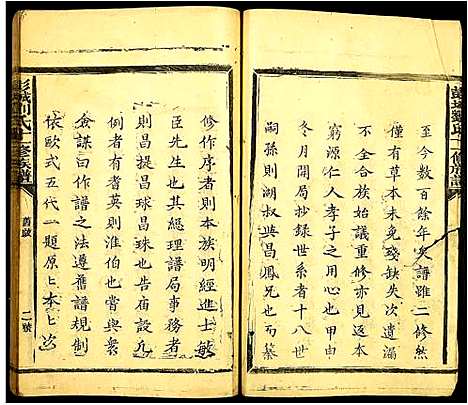 至今数百餘年矣譜雖二修然
僅有草本未免殘缺失次遺漏
不全合族始議重修亦見返本
窮源仁人孝子之用心也甲申
冬月開局抄錄世系者十八世
嗣孫則湖典昌鳳兄也而纂
修作序者則本族明經進士敏
臣先生也其總理譜局事務者
則昌提昌球昌珠也告廟設凢
例者有耆英則淮伯也嘗與衆
僉謀曰作譜之法遵舊譜規制
依歐式五代一題原上本上次
彭城刘氏二修族譜
舊跋
二號